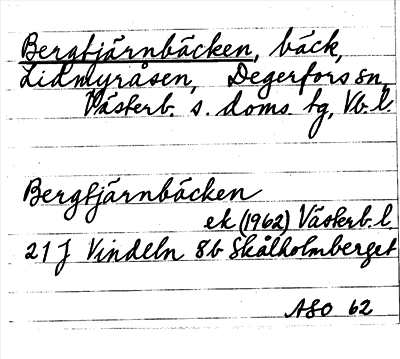 Bergtjärnbäcken, bäck,
Lidmyråsen, Degerfors sn,
Västerb. s. doms. tg, Vb. l.
Bergtjärnbäcken
ek (1962) Västerb. l.
21 J Vindeln 8b Skålholmberget
ASO 62